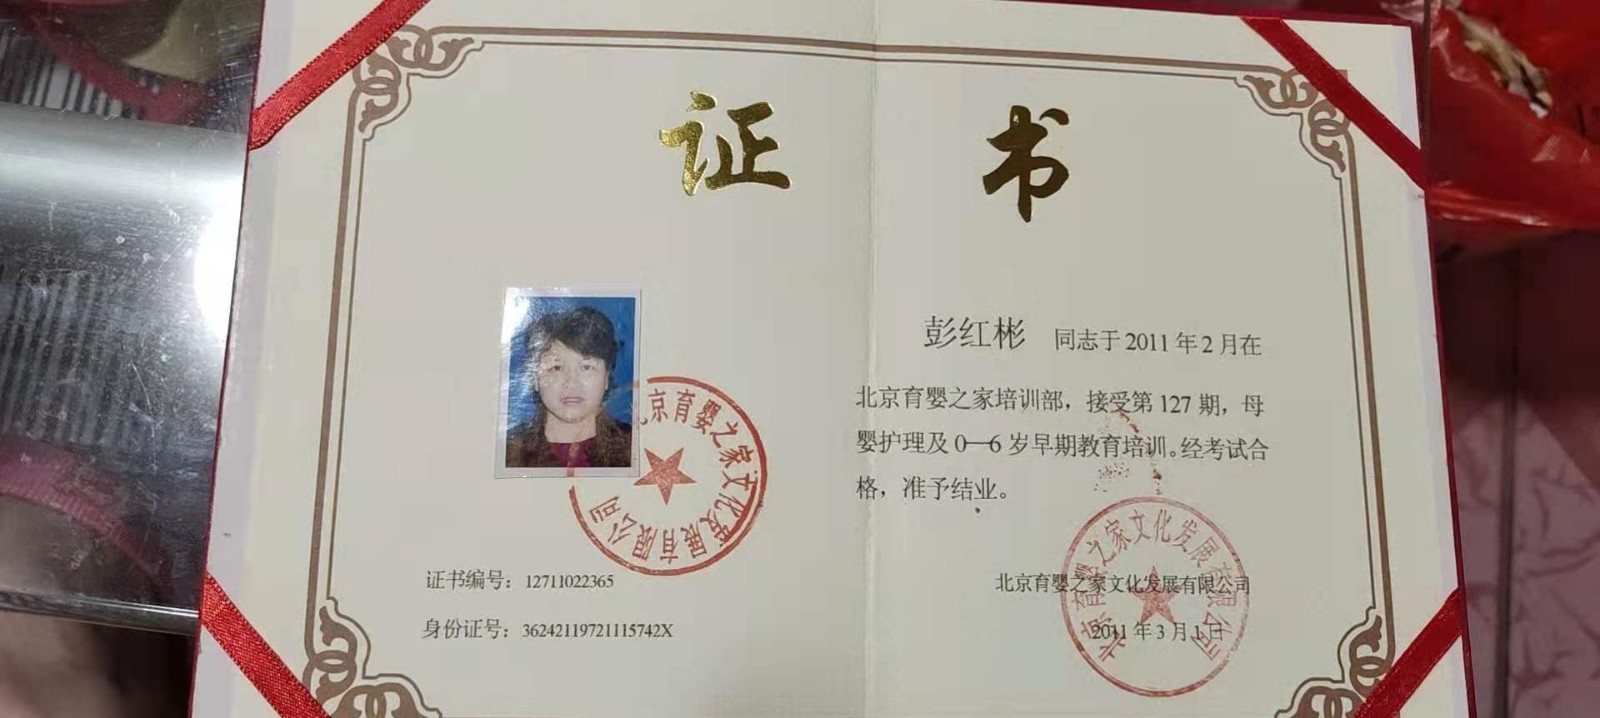 证书
彭红彬 同志于2011年2月在
北京育婴之家培训部，接受第127期，母
婴护理及0—6岁早期教育培训。经考试合
格，准予结业。
北京育婴之家文化发展有限公司
证书编号：12711022365
身份证号：36242119721115742X
北京育婴之家文化发展有限公司
2011年3月1日
北京育婴之家文化发展有限公司